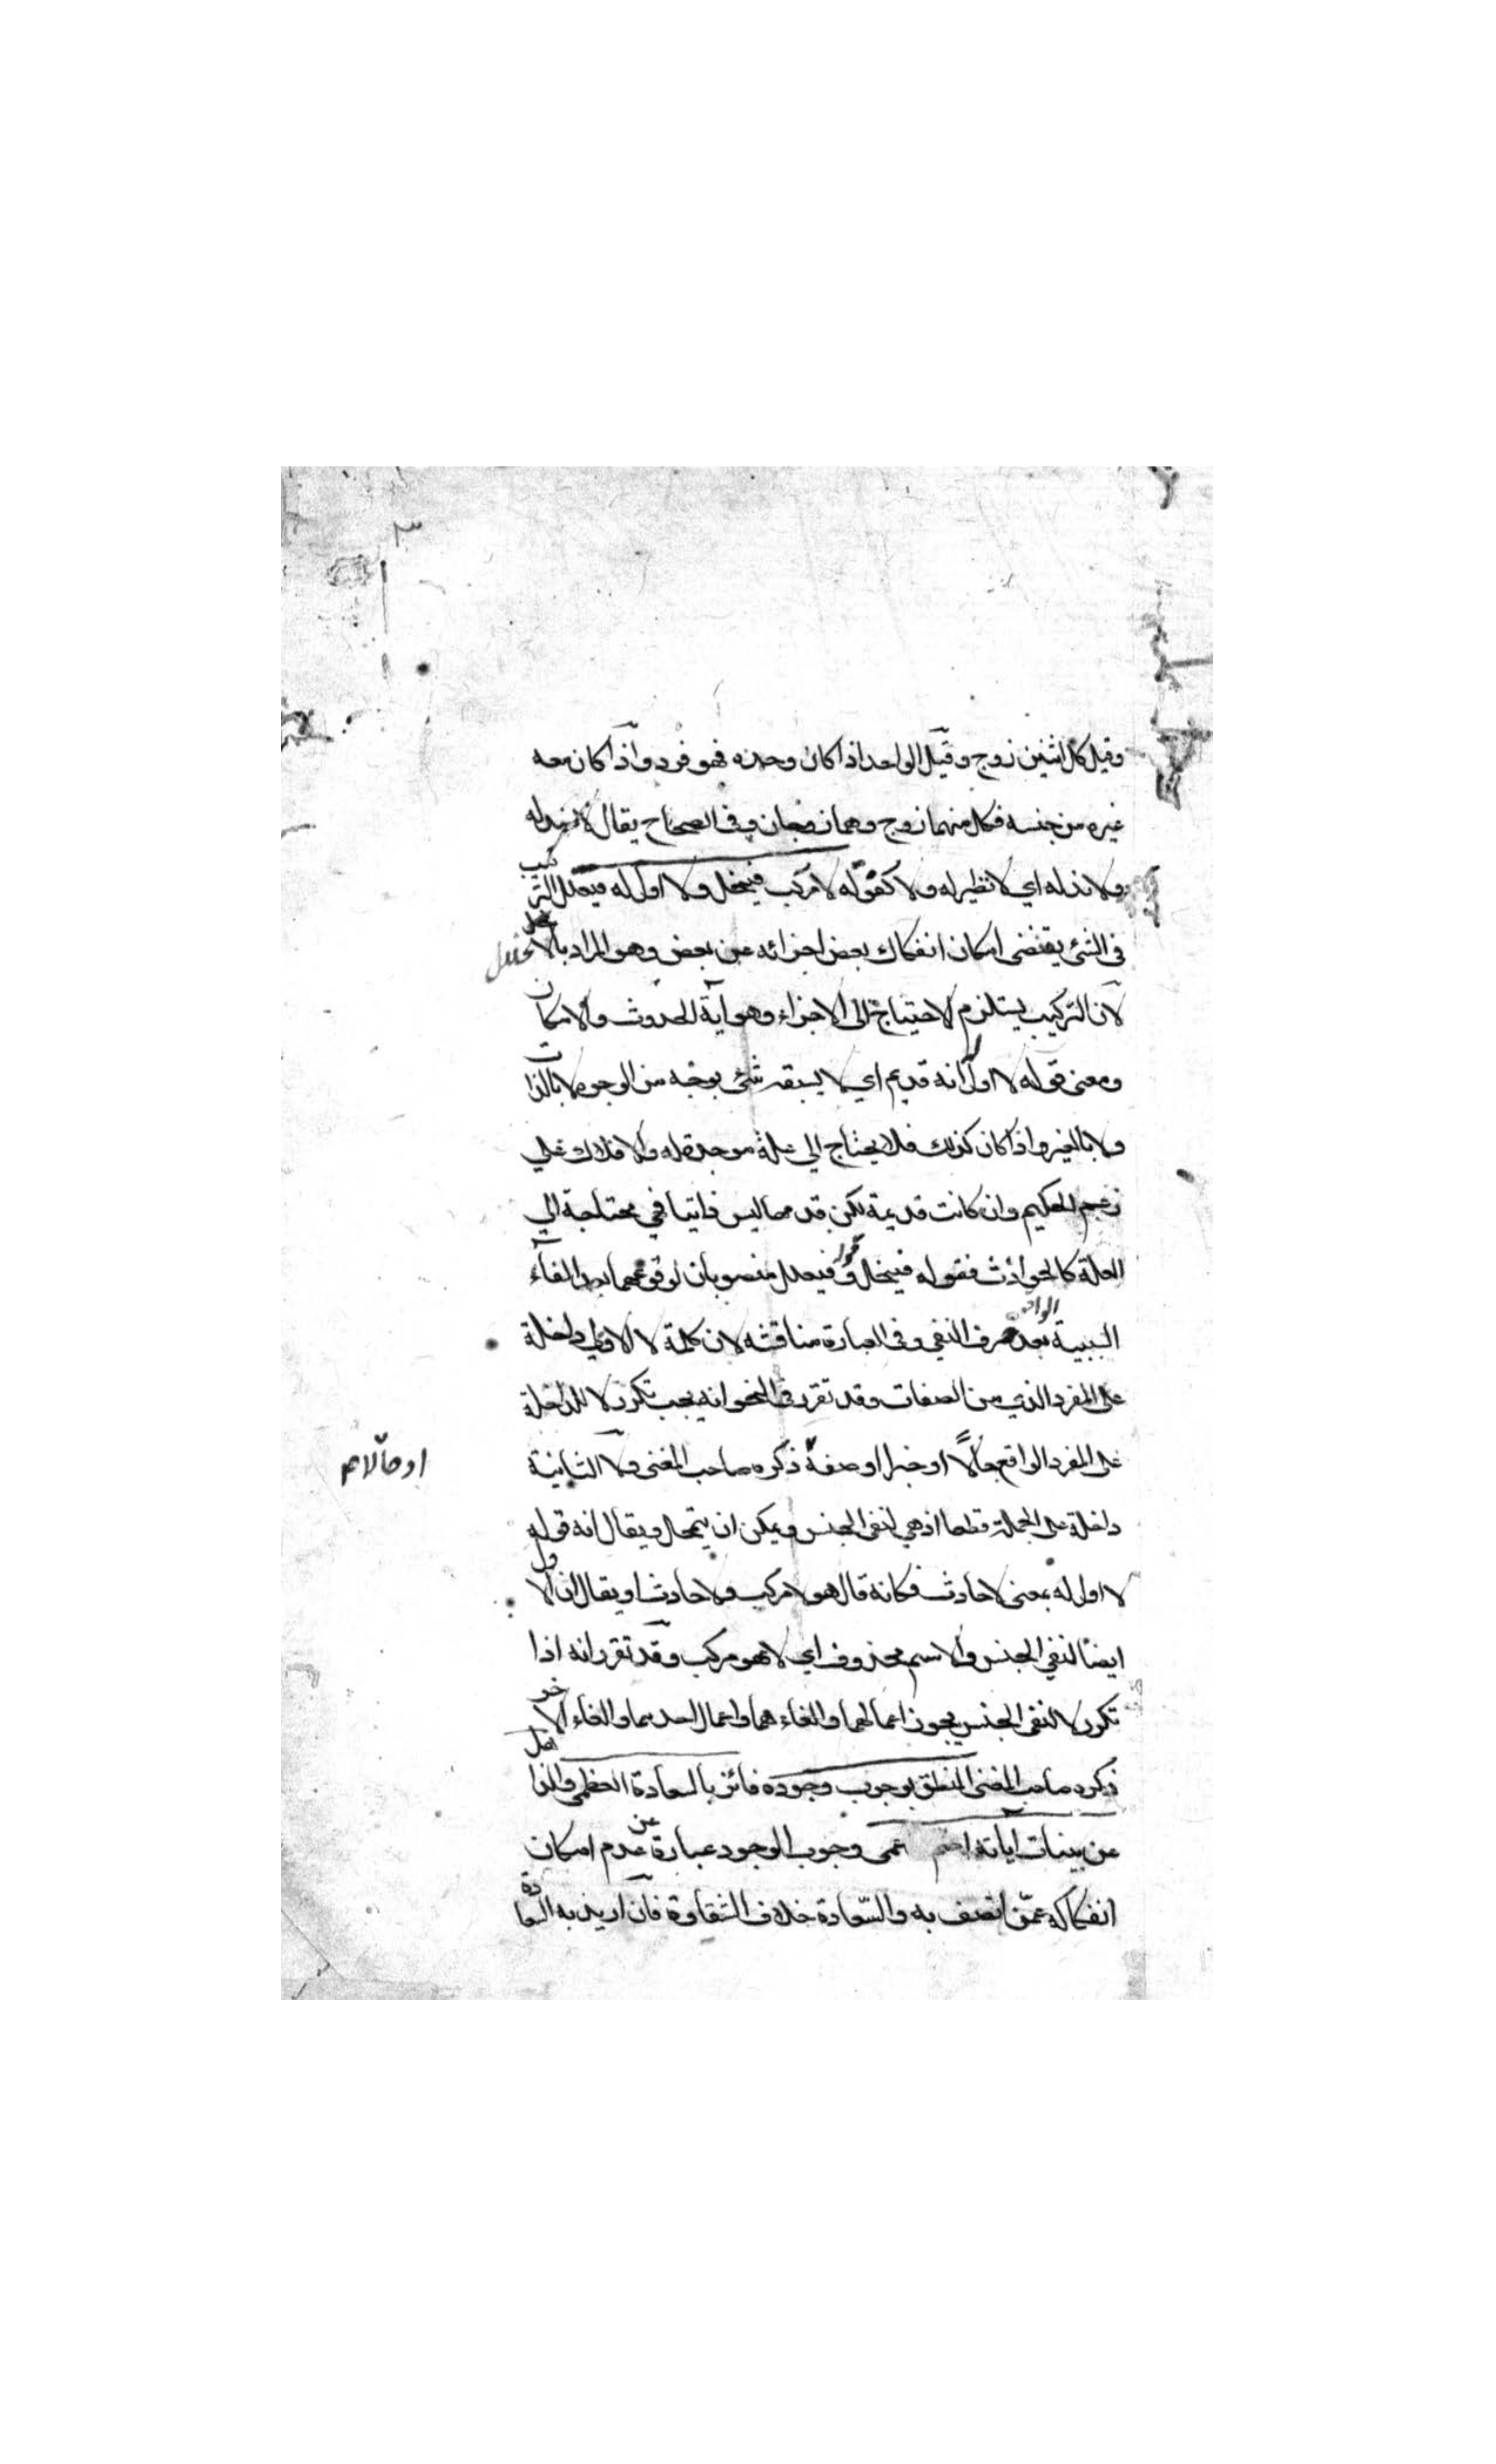 وقيل كل اثنين زوج وقيل الواحد اذا كان وحده فهو فرد واذا كان معه
غيره من جنسه فكل منهما زوج وهما زوجان وفي الصحاح يقال لا ضد له
ولا ند له اي لا نظير له ولا كفو له لا مركب فينحل ولا اول له فيعلل التركيب
في الشئ يقتضى امكان انفكاك بعض اجزائه عن بعض وهو المراد بالانحلال
لان التركيب يستلزم الاحتياج الى الاجزاء وهو آية الحدوث والامكان
ومعنى قوله لا اول انه قديم اي لا يسبقه شئ بوجه من الوجوه لا بالذات
ولا بالغير واذا كان كذلك فلا يحتاج الى علة موجدة له والافلاك على
زعم الحكيم وان كانت قديمة لكن قدمها ليس ذاتيا فهي محتاجة الى
العلة كالحوادث فقوله فينحل وقوله فيعلل منصوبان لوقوعهما بعد الفاء
السببية الواقعة بعد حرف النفي وفي العبارة مناقشة لان كلمة لا الاولى داخلة
على المفرد الذي من الصفات وقد تقرر في النحو انه يجب تكرر لا الداخلة
على المفرد الواقع حالا او خبرا او صفة ذكره صاحب المغنى ولا الثانية
او حالا
داخلة على الجملة قطعا اذ هي لنفي الجنس ويمكن ان يتمحل ويقال انه قوله
لا اول له بمعنى لا حادث فكانه قال هو لا مركب ولا حادث او يقال ان الاول
ايضا لنفي الجنس والاسم محذوف اي لا هو مركب وقد تقرر انه اذا
تكرر لا لنفي الجنس يجوز اعمالهما والغاءهما واعمال احديهما والغاء الاخر
ذكره صاحب المغنى المنطق بوجوب وجوده فائز بالسعادة العظمى والذاهل
عن بينات آياته عمى وجوب الوجود عبارة عن عدم امكان
انفكاكه عمن اتصف به والسعادة خلاف الشقاوة فان اريد به السعادة